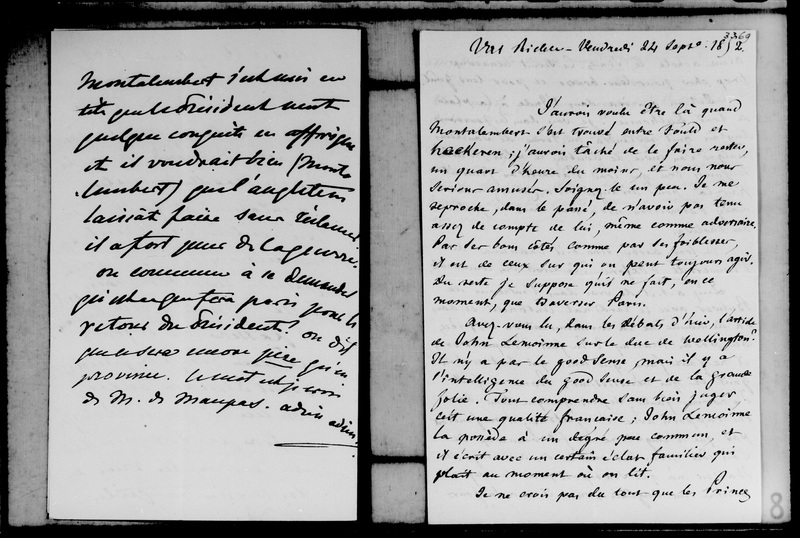 Montalembert s'est mis en
tête que le Président veut
quelque conquête en affrique
et il voudrait bien (Monta
-lembert) que l'angleterre
laissât faire sans réclamer.
il a fort peur de la guerre.
on commence à se demander
qui changera paris pour le
retour du Président. on dit
que ce sera encore pire qu'en
province. le mot est je crois
de M. de Maupas. adieu adieu.
3369
Val Richer - Vendredi 24 Septe. 1852.
J'aurois voulu être là quand
Montalembert s'est trouvé entre Fould et
Heckeren ; j'aurois tâché de le faire rester,
un quart d'heure du moins, et nous nous
serions amusés. Soignez-le un peu. Je me
reproche, dans le passé, de n'avoir pas tenu
assez de compte de lui, même comme adversaire.
Par ses bons côtés comme par ses foiblesses,
il est de ceux sur qui on peut toujours agir.
Du reste je suppose qu'il ne fait, en ce
moment, que traverser Paris.
Avez-vous lu, dans les Débats d'hier, l'article
de John Lemoinne sur le duc de Wellington ?
Il n'y a pas le good sense, mais il y a
l'intelligence du good sense et de la grande
folie. Tout comprendre sans bien juger
c'est une qualité française ; John Lemoinne
la possède à un degré peu commun, et
il écrit avec un certain éclat familier qui
plait au moment où on lit.
Je ne crois pas du tout que les Princes
8